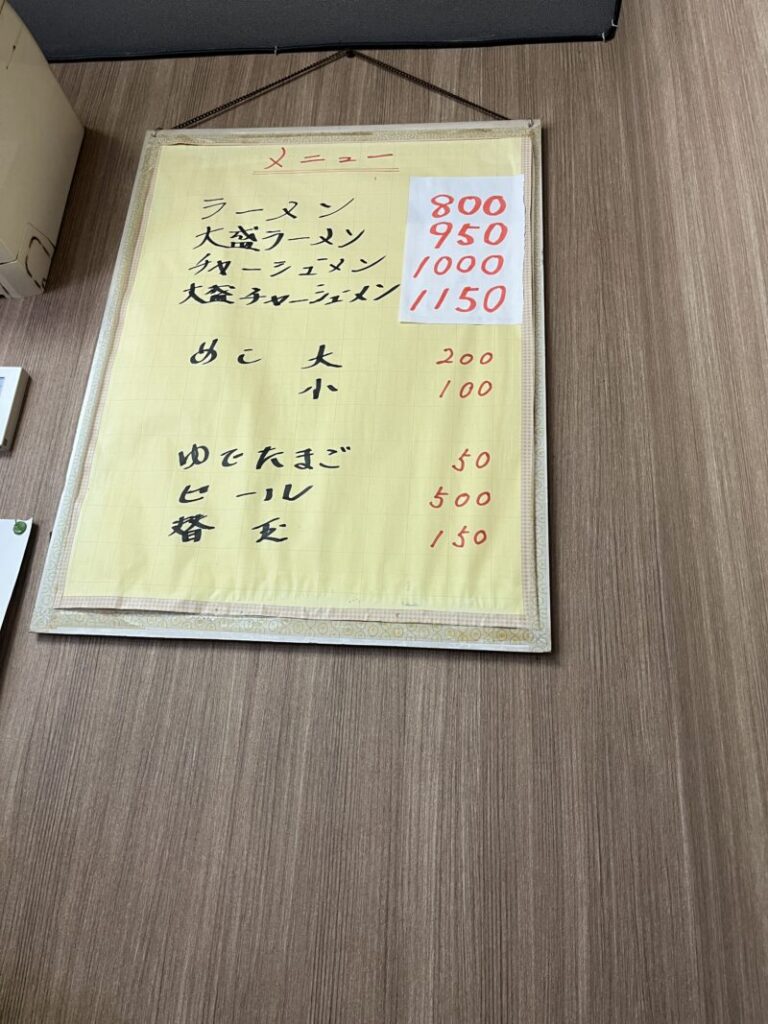 メニュー
ラーメン 800
大盛ラーメン 950
チャーシューメン 1000
大盛チャーシューメン 1150
めし 大 200
小 100
ゆでたまご 50
ビール 500
替玉 150